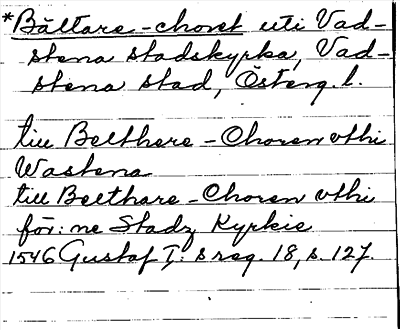 *Bältare-choret uti Vad-
stena stadskyrka, Vad-
stena stad, Österg. l.
till Beelthere-Choren vthi
Wastena
till Beelthare-Choren vthi
för:ne Stadz Kyrkie
1546 Gustaf I:s reg. 18, s. 127.